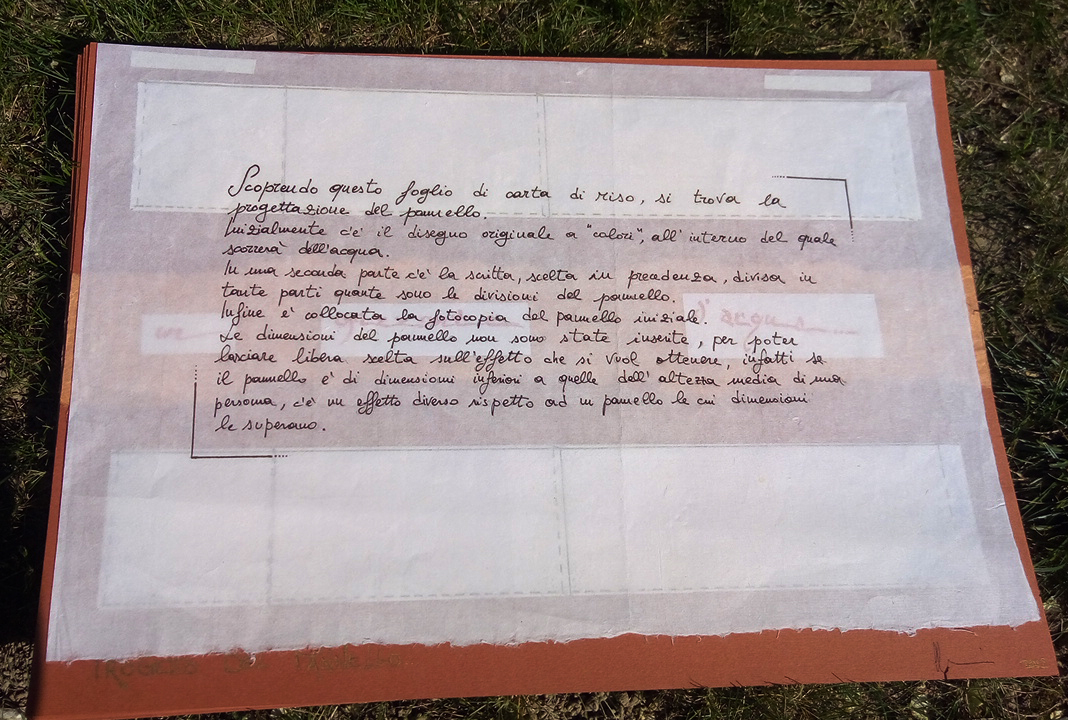 Scoprendo questo foglio di carta di riso, si trova la
progettazione del pannello.
Inizialmente c'e' il disegno originale a "colori", all'interno del quale
scorrerà dell'acqua.
In una seconda parte c'e' la scritta, scelta in precedenza, divisa in
tante parti quante sono le divisioni del pannello.
Infine e' collocata la fotocopia del pannello iniziale.
d'argu
Le dimensioni del pannello non sono state inserite, per poter
lasciare libera scelta sull'effetto che si vuol ottenere, infatti se
il pannello e' di dimensioni inferiori a quelle dell'altezza media di una
persona, c'e' un effetto diverso rispetto ad un pannello le cui dimensioni
le superano.